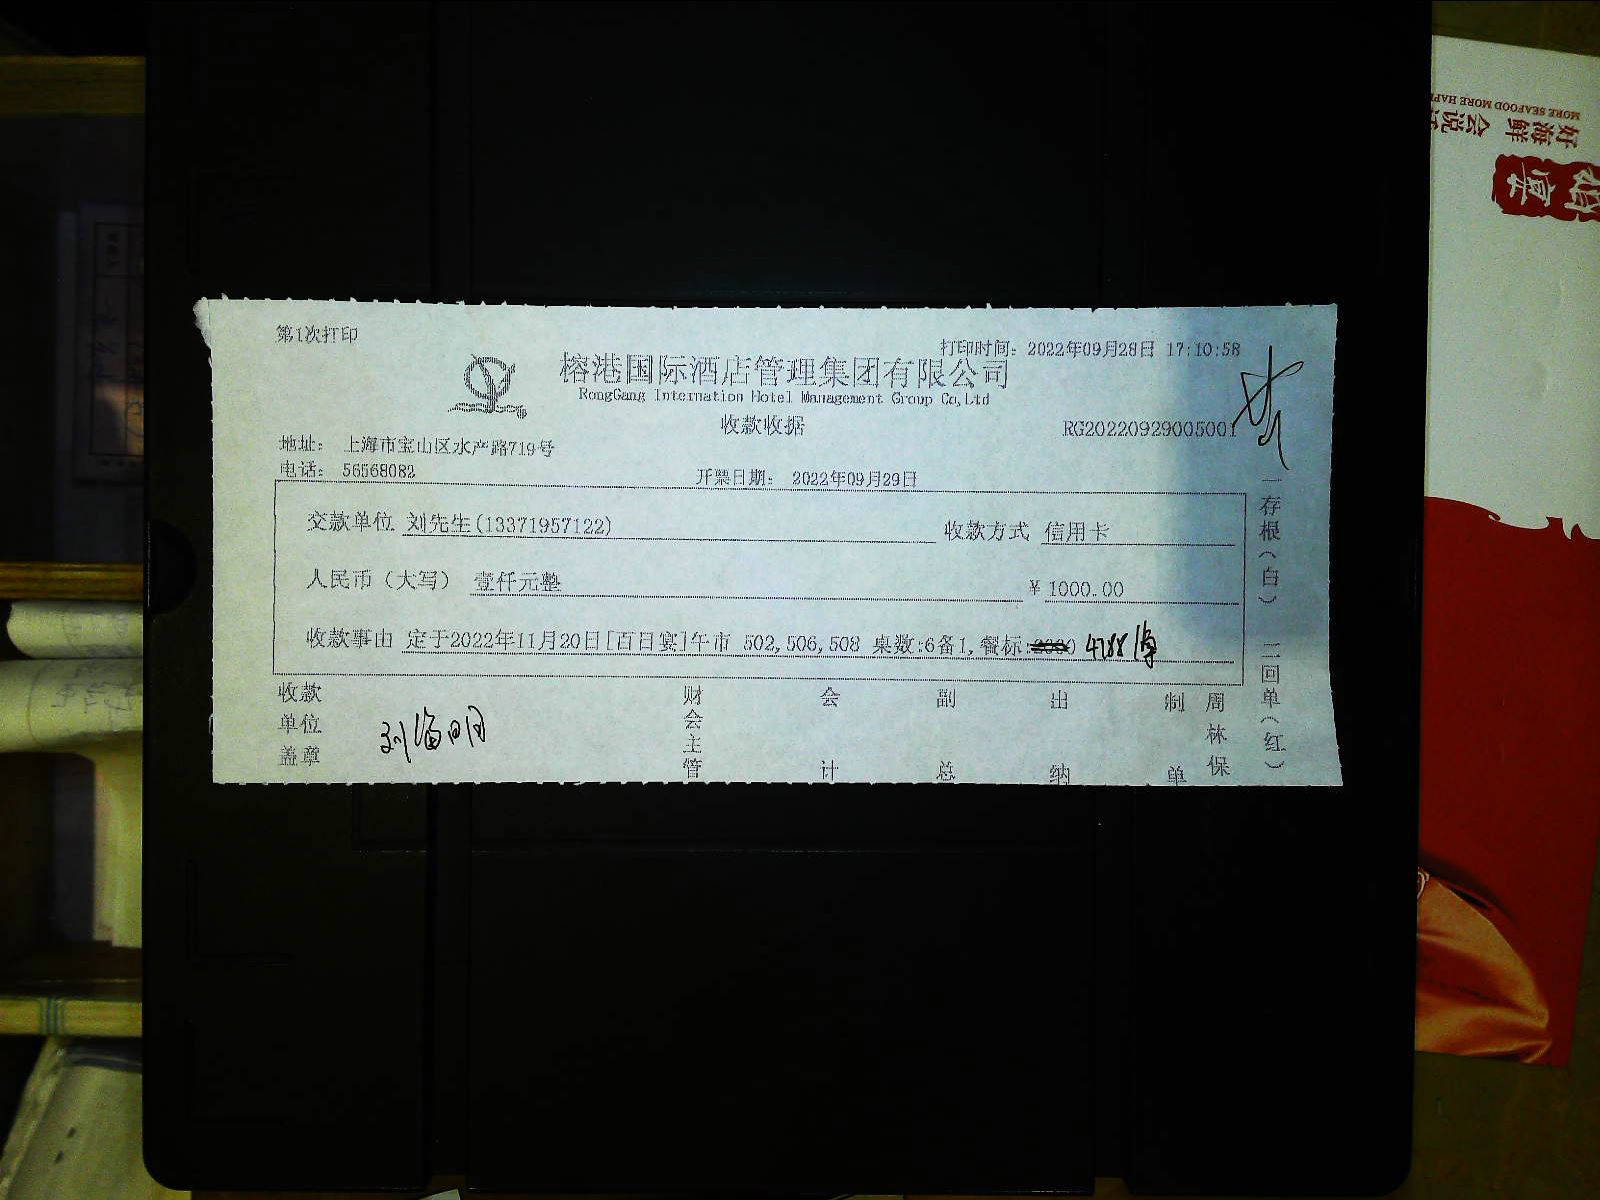 第1次打印
打印时间: 2022年09月28日 17:10:58
榕港国际酒店管理集团有限公司
RongGang Internation Hotel Management Group Co,Ltd
收款收据
RG20220929005001
地址: 上海市宝山区水产路719号
电话: 56568082
开票日期: 2022年09月29日
交款单位 刘先生(13371957122) 收款方式 信用卡
人民币（大写） 壹仟元整 ¥ 1000.00
收款事由 定于2022年11月20日[百日宴]午市 502,506,508 桌数:6备1,餐标: 4788
收款单位盖章
财会主管
会计
副总
出纳
制单
周林保
一存根(白) 二回单(红)
MORE SEAFOOD MORE HAP
好海鲜 会说
宴